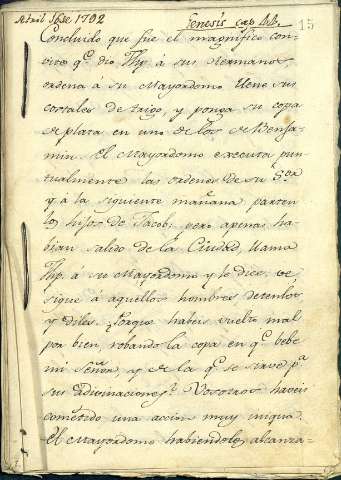 Abril 16 de 1792
Genesis cap 44.
15
Concluido que fue el magnifico con-
vite q.e dio Jhp. á sus Hermanos,
ordena á su Mayordomo llene sus
costales de trigo, y ponga su copa
de plata en uno de los de Benja-
min. El Mayordomo executa pun-
tualmente las ordenes de su S.or
y á la siguiente mañana parten
los hijos de Jacob; pero apenas ha-
bian salido de la Ciudad, llama
Jhp. á su Mayordomo y le dice: ve,
sigue á aquellos hombres detenlos,
y diles: Porque habeis vuelto mal
por bien, robando la copa en q.e bebe
mi Señor, y de la q.e se sirve p.a
sus adivinaciones? Vosotros haveis
cometido una accion muy iniqua.
El Mayordomo habiendolos alcanza-